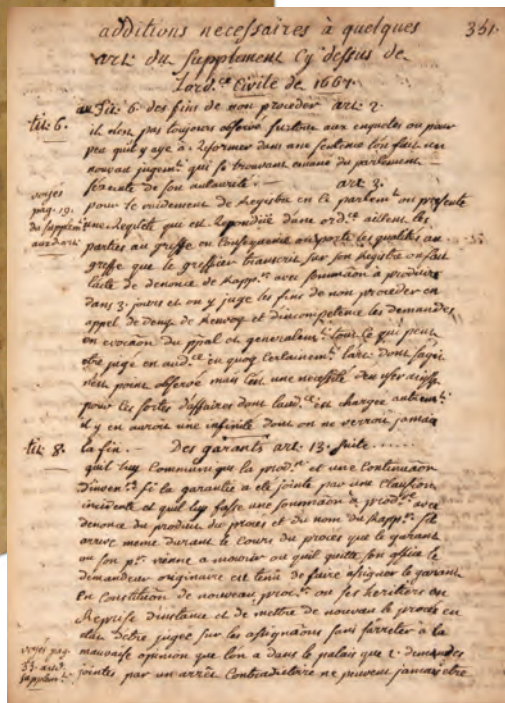 additions necessaires à quelques 351.
art. du supplement cy dessus de
l'ord.ce civile de 1667.
tit. 6. au tit. 6. des fins de non proceder art. 2.
il n'est pas toujours observé surtout aux enquetes ou pour
peu qu'il y aye à reformer dans une sentence l'on fait un
nouveau jugem.t qui se trouvant emané du parlement
de son autorité. — art. 3.
voyés pag. 19. du supplem.t
pour le vuidement de registre en le parlem.t on presente
une requete qui est repondüe d'une ord.ce ailsent les
parties au greffe on porte les qualités au
greffe que le greffier transcrit sur son registre on fait
l'acte de denonce de rapp.r avec sommaon à produire
dans 3. jours et on y juge les fins de non proceder en
appel de deny de renvoy et d'incompetence les demandes
en evocaon du ppal et generalem.t tout ce qui peut
etre jugé en aud.ce en quoy certainem.t l'art. dont s'agit
n'est point observé mais c'est une necessité d'en user ainsi
pour les sortes d'affaires dont l'aud.ce est chargée autrem.t
il y en auroit une infinité dont on ne verroit jamais
tit. 8. la fin. — Des garants art. 13. suite .....
qu'il luy communique la prod.on et une continuaon
d'inven.re si la garantie a eté jointe par une clausion
incidente et qu'il luy fasse une sommaon à prod.re avec
denonce du produit du proces et du nom du rapp.r s'il
arrive meme durant le cours du procés que le garant
ou son p.r vienne a mourir ou qu'il quitte son office le
demandeur originaire est tenu de faire assigner le garant
en constituon de nouveau proc.r ou ses heritiers en
reprise d'instance et de mettre de nouveau le procés en
etat d'etre jugé sur les assignaons sans s'arreter à la
voyés pag. 33. supplem.t
mauvaise opinion que l'on a dans le palais que 2. demandes
jointes par un arrêt contradictoire ne peuvent jamais etre